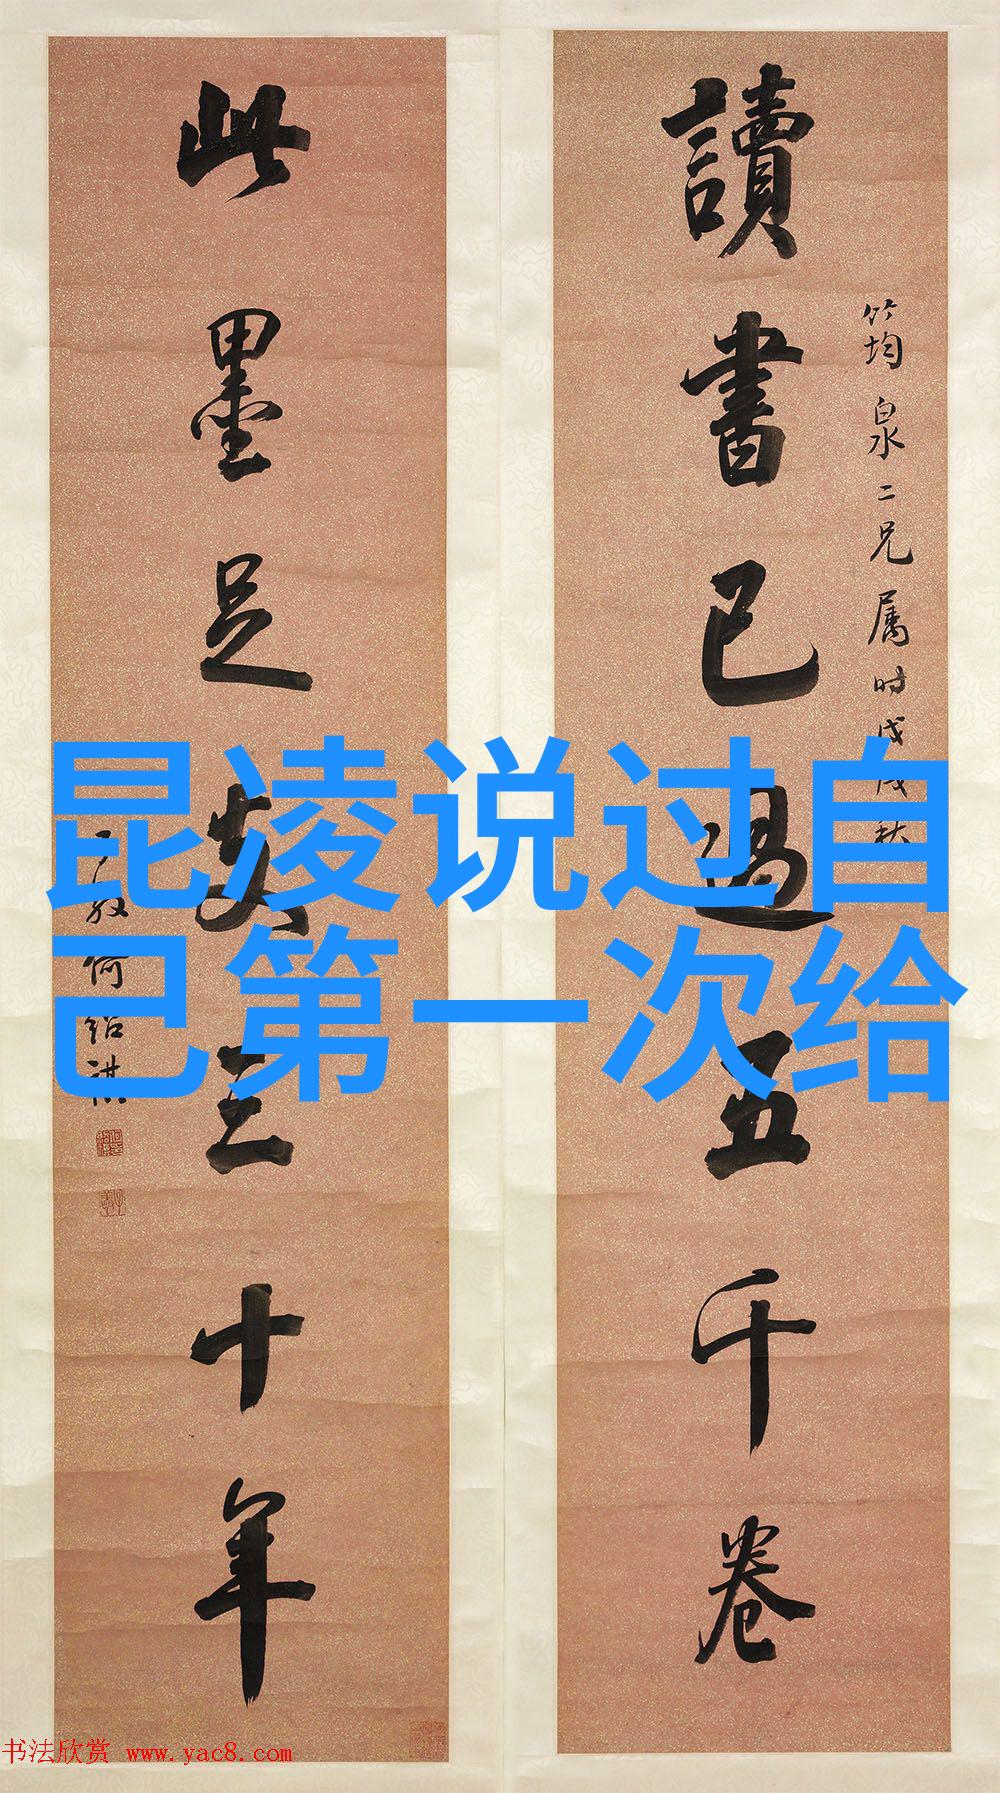 讀書已過五千卷
竹均泉二兄属时戊戌秋
此墨足支三十年
何紹祺
昆凌说过自
己第一次给
书法欣赏 www.yac8.com